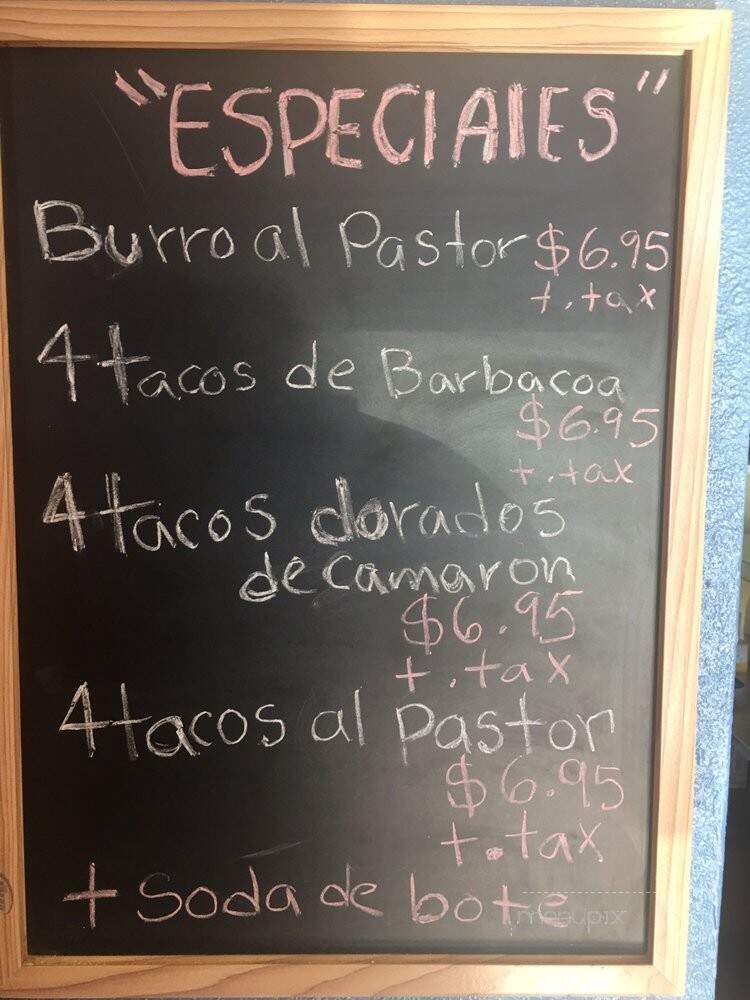 "ESPECIAlES"
Burro al Pastor $6.95
+.tax
4 tacos de Barbacoa
$6.95
+.tax
4 tacos dorados
de camaron
$6.95
+.tax
4 tacos al pastor
$6.95
+.tax
+ Soda de bote
menupix